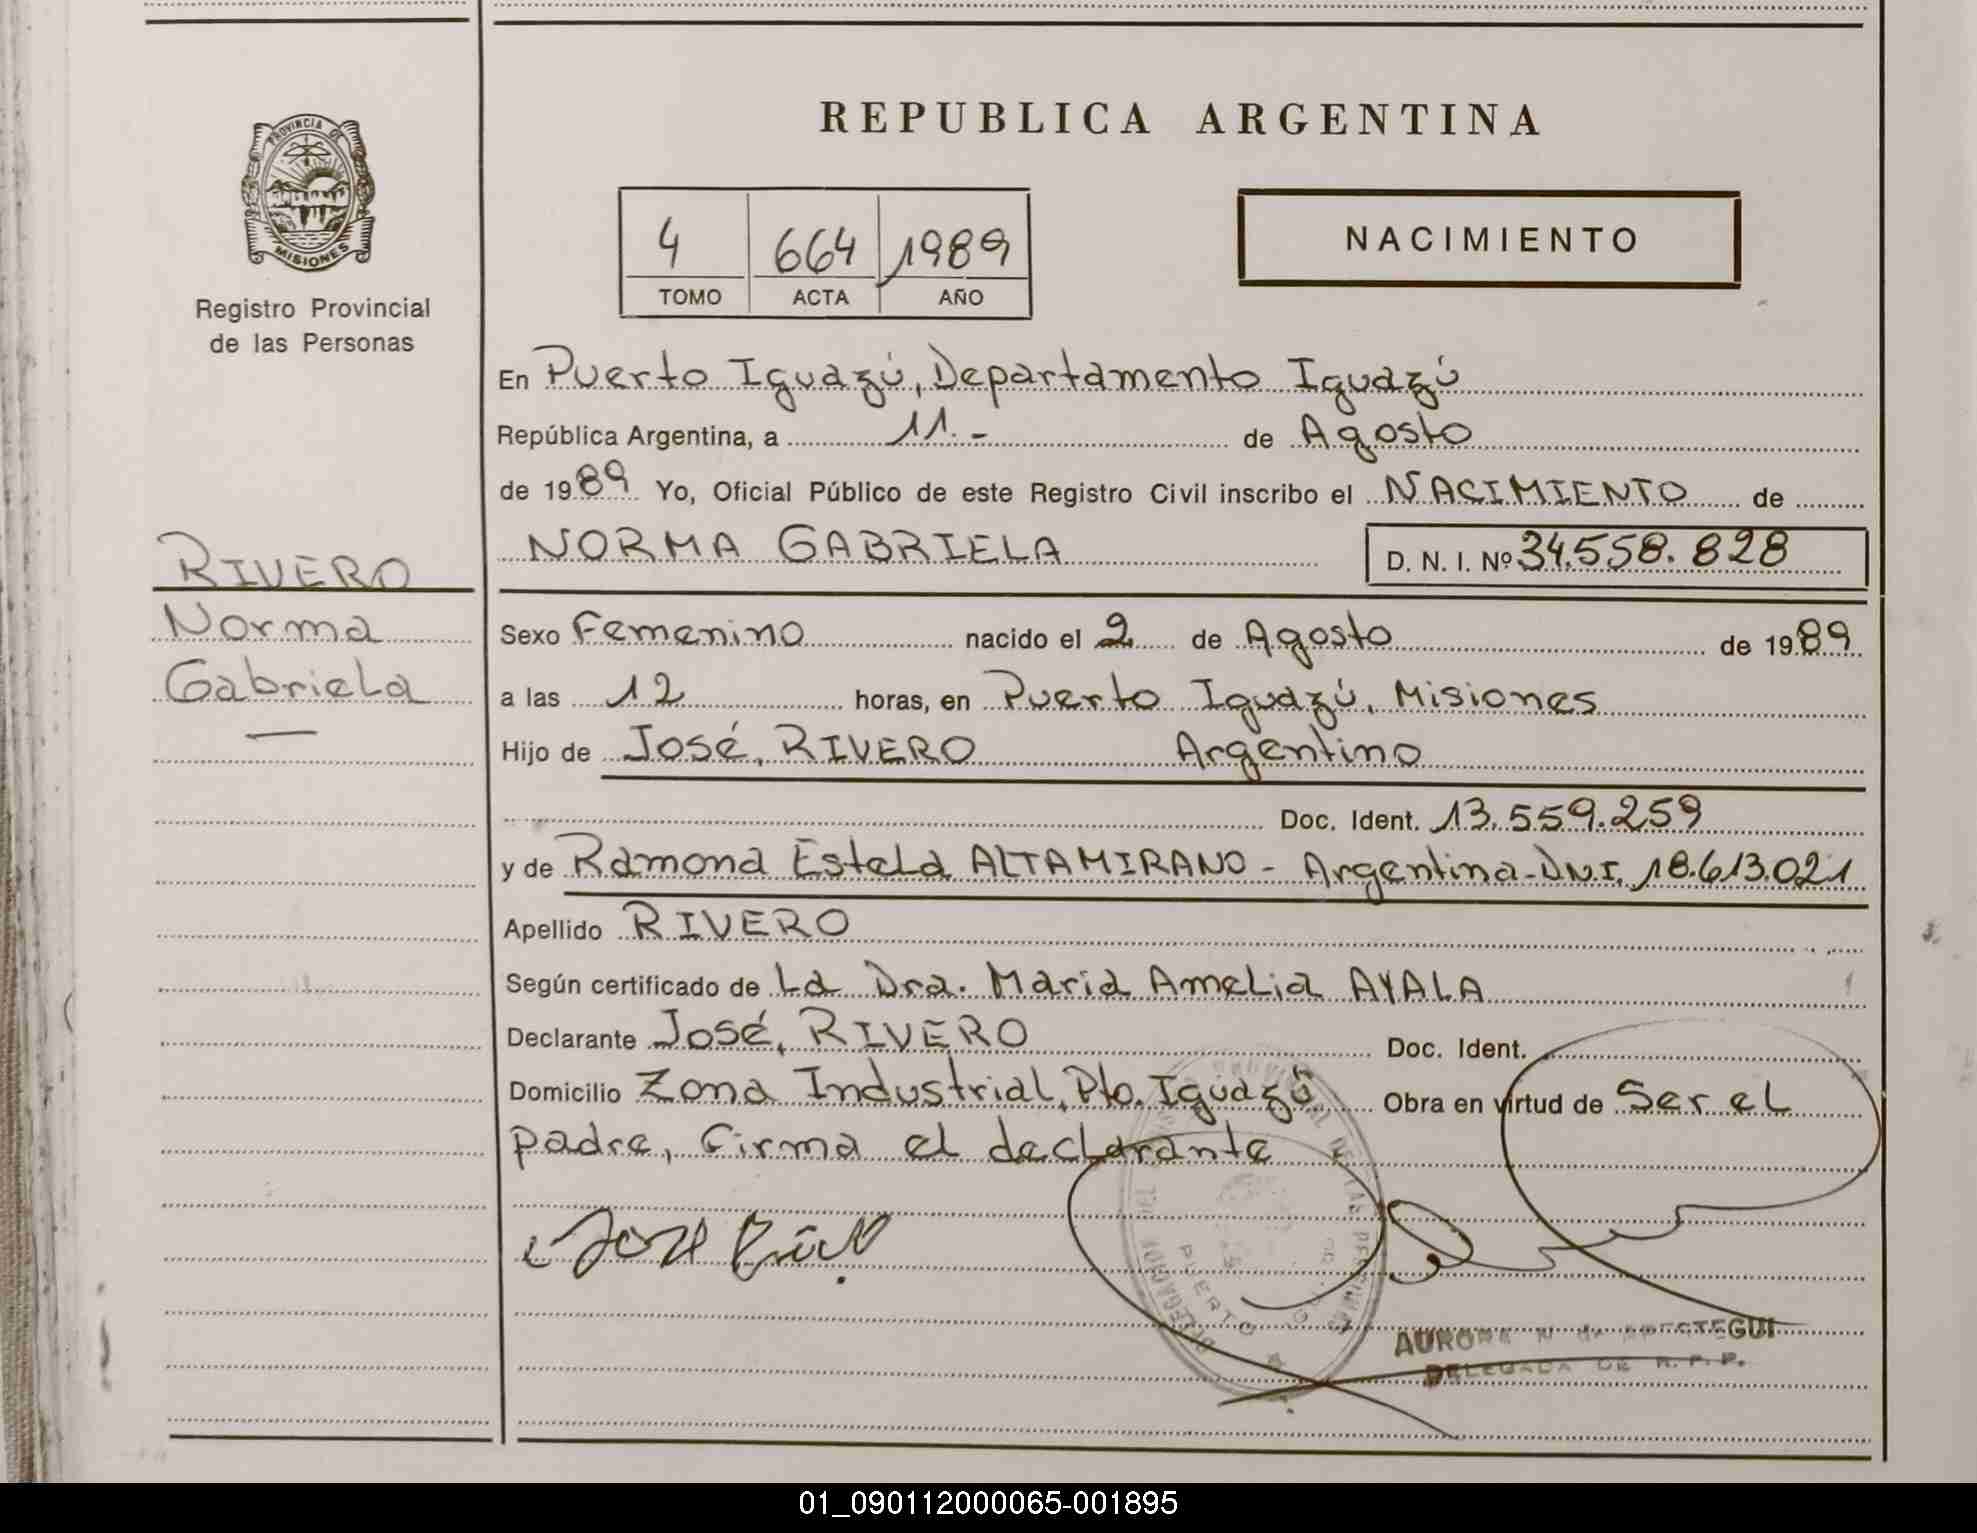 PROVINCIA DE
MISIONES
Registro Provincial
de las Personas
RIVERO
Norma
Gabriela
REPUBLICA ARGENTINA
4 664 1989
TOMO ACTA AÑO
NACIMIENTO
En Puerto Iguazú, Departamento Iguazú
República Argentina, a 11.- de Agosto
de 1989 Yo, Oficial Público de este Registro Civil inscribo el NACIMIENTO de
NORMA GABRIELA D. N. I. Nº 34.558.828
Sexo Femenino nacido el 2 de Agosto de 1989
a las 12 horas, en Puerto Iguazú, Misiones
Hijo de José, RIVERO Argentino
Doc. Ident. 13.559.259
y de Ramona Estela ALTAMIRANO - Argentina - D.N.I. 18.613.021
Apellido RIVERO
Según certificado de La Dra. Maria Amelia AYALA
Declarante José, RIVERO Doc. Ident.
Domicilio Zona Industrial, Pto. Iguazú Obra en virtud de Ser el
padre, firma el declarante
PUERTO
AURORA
DELEGADA DE R. P. P.
01_090112000065-001895